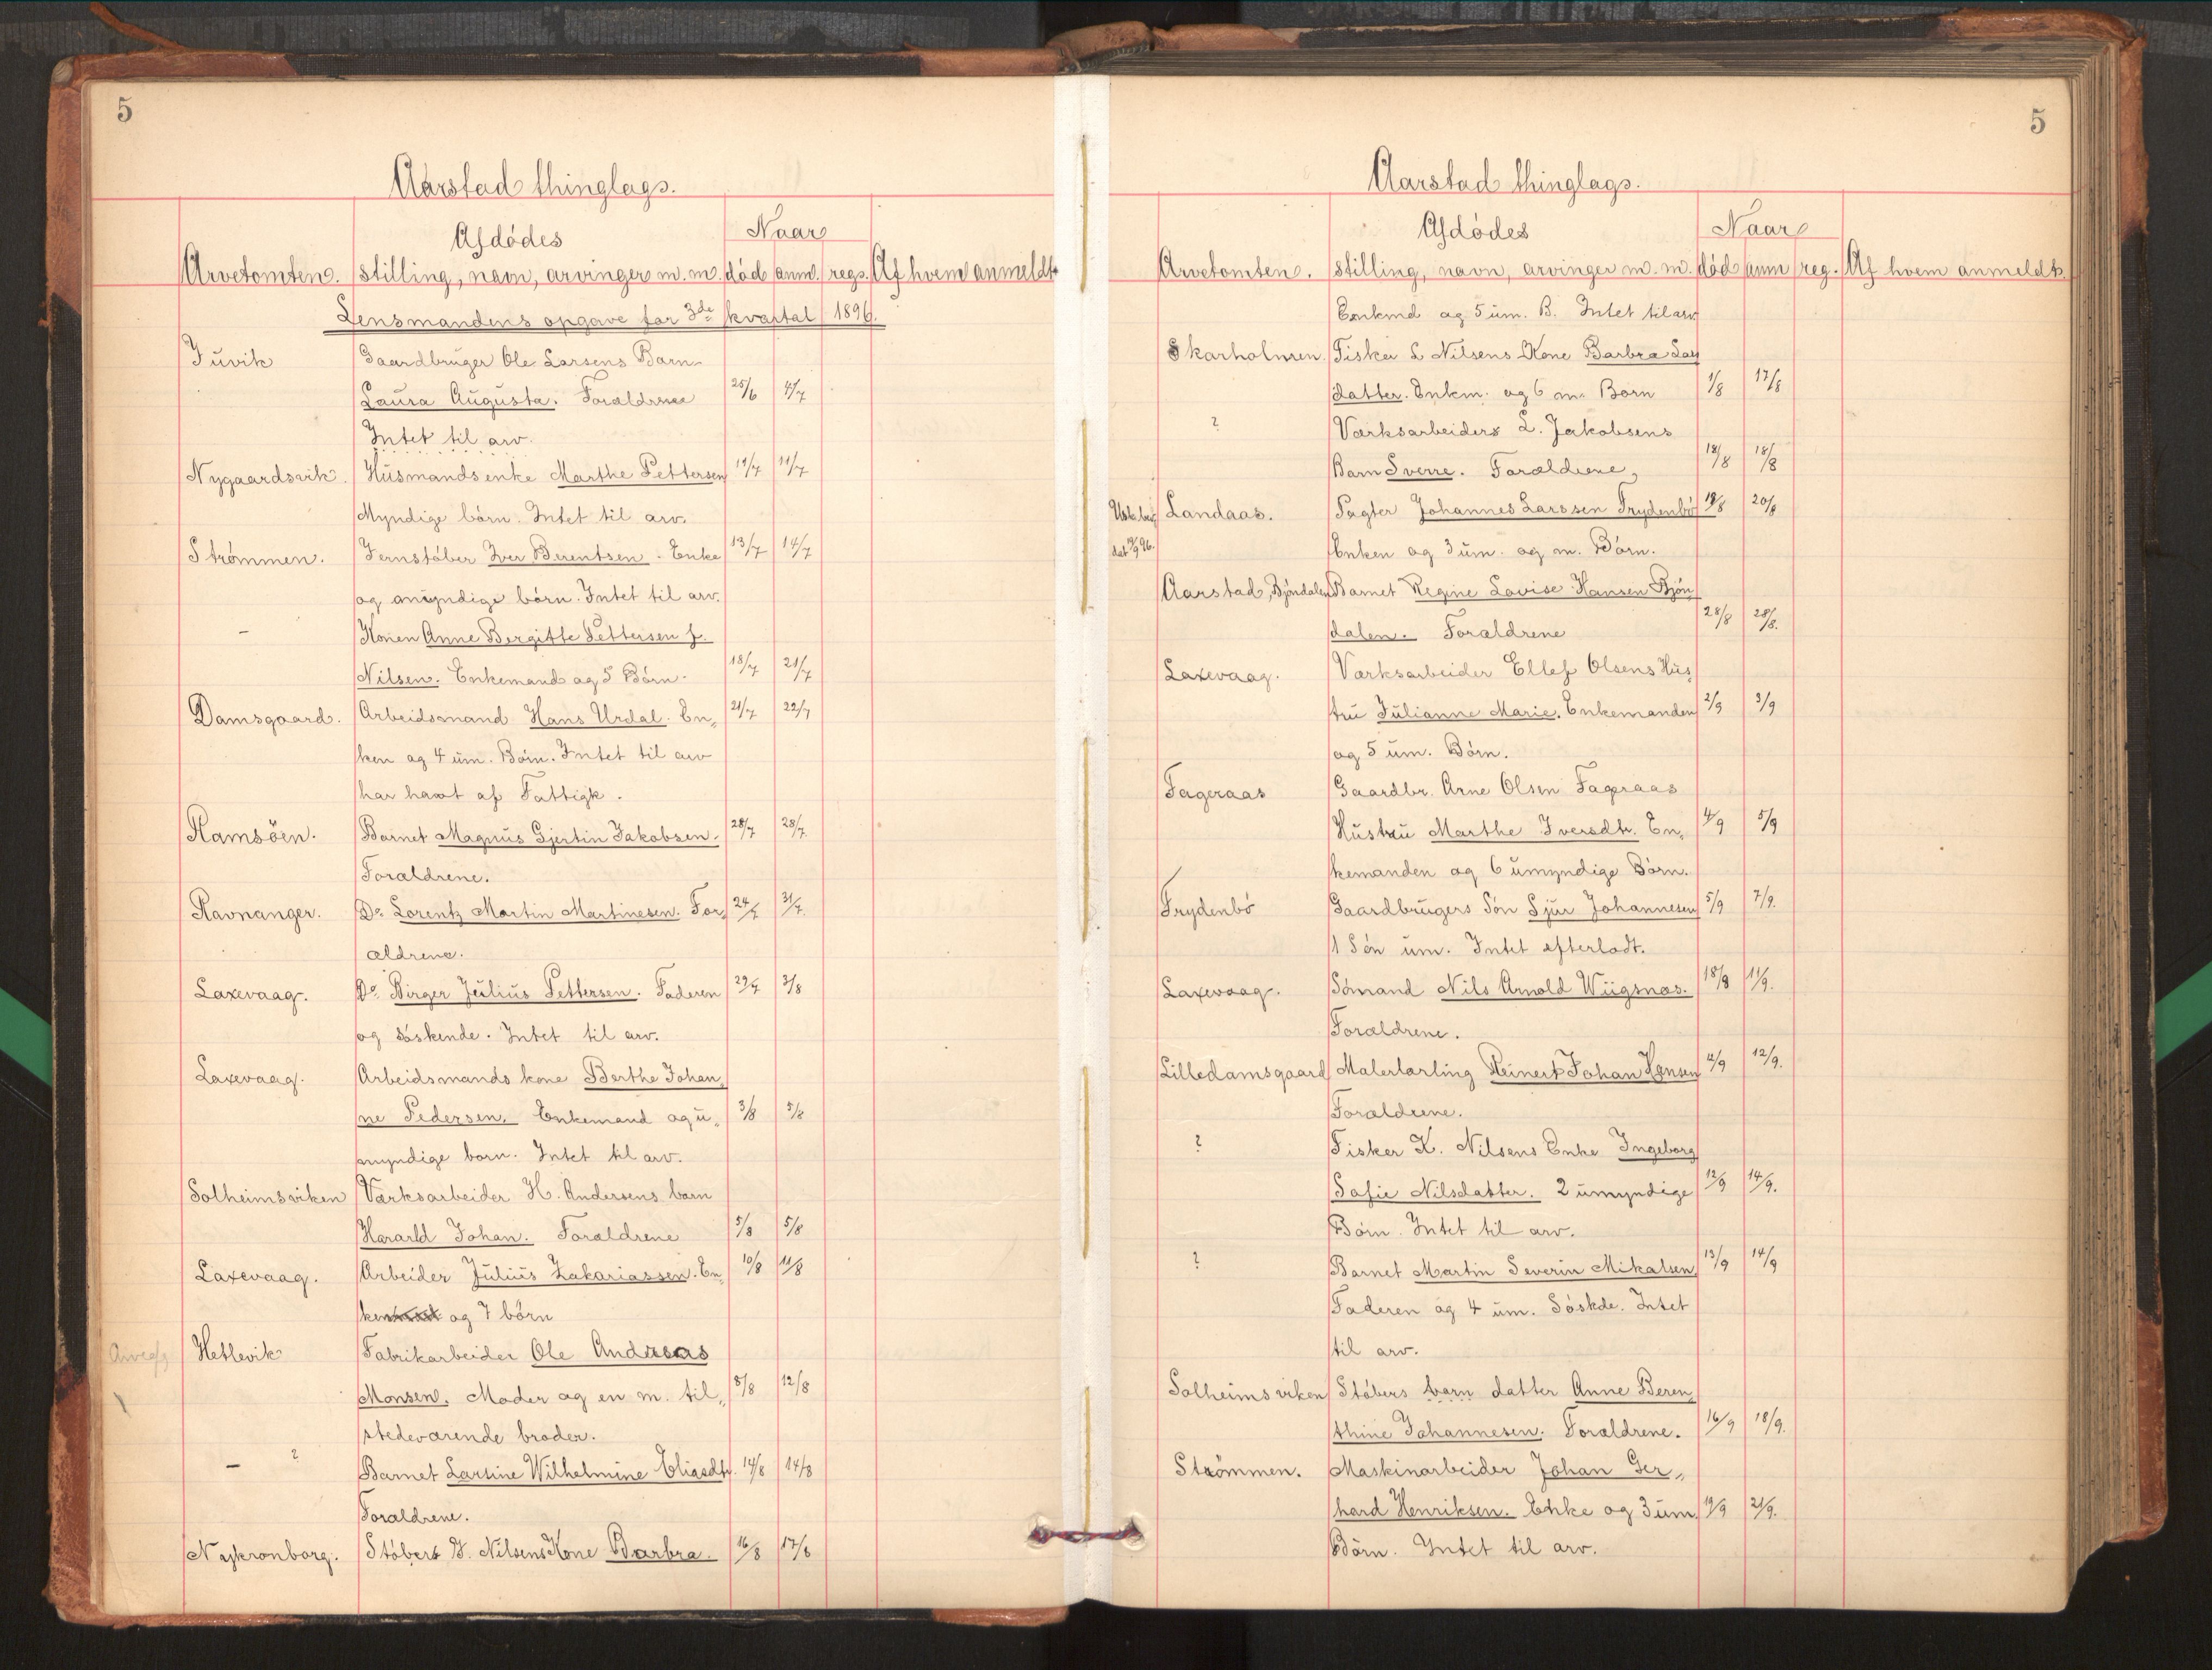 5
Aarstad thinglags.
Afdödes
Naar
Arvetomten. stilling, navn, arvinger m. m. död anm. regs. Af hvem anmeldt
Lensmandens opgave for 3de kvartal 1896.
Juvik Gaardbruger Ole Larsens Barn
Laura Augusta. Forældrene 25/6 4/7
Intet til arv.
Nygaardsvik. Husmandsenke Marthe Pettersen 11/7 11/7
Myndige börn. Intet til arv.
Strömmen. Jernstöber Iver Berentsen. Enke 13/7 14/7
og myndige börn. Intet til arv.
- Konen Anne Bergitte Pettersen f.
Nilsen. Enkemand og 5 Börn. 18/7 21/7
Damsgaard. Arbeidsmand Hans Urdal. En„ 21/7 22/7
ken og 4 um. Börn. Intet til arv
har havt af Fattigk.
Ramsöen. Barnet Magnus Gjertin Jakobsen. 28/7 28/7
Forældrene.
Ravnanger. Do Lorentz Martin Martinesen. For„ 24/7 31/7
ældrene.
Laxevaag. Do Birger Julius Pettersen. Faderen 29/7 3/8
og söskende. Intet til arv.
Laxevaag. Arbeidsmands kone Berthe Johan„
ne Pedersen. Enkemand og u„ 3/8 5/8
myndige born. Intet til arv.
Solheimsviken Værksarbeider H. Andersens barn
Hararld Johan. Forældrene 5/8 5/8
Laxevaag. Arbeider Julius Zakariassen. En„ 10/8 11/8
ken og 7 börn
Hetlevik Fabrikarbeider Ole Andreas
Monsen. Moder og en m. til„ 8/8 12/8
stedeværende broder.
- ? Barnet Larsine Wilhelmine Eliasdtr. 14/8 14/8
Forældrene.
Nykronborg. Stöbers W. Nilsens Kone Barbra. 16/8 17/8
5
Aarstad thinglags.
Afdödes
Naar
Arvetomten. stilling, navn, arvinger m. m. död anm reg. Af hvem anmeldt.
Enkmd og 5 um. B. Intet til arv
Skarholmen. Fisker L Nilsens Kone Barbra Lars
datter. Enkm. og 6 m. Born 1/8 17/8
? Værksarbeiders L. Jakobsens
Barn Sverre. Forældrene, 18/8 18/8
Landaas. Pagter Johannes Larssen Frydenbö 18/8 20/8
Enken og 3 um. og m. Börn.
Aarstad, Bjöndalen Barnet Regine Lovise Hansen Bjön
dalen. Forældrene 28/8 28/8.
Laxevaag. Værksarbeider Ellef Olsens Hus„
tru Julianne Marie. Enkemanden 2/9 3/9
og 5 um. Börn.
Fageraas Gaardbr. Arne Olsen Fageraas
Hustru Marthe Iversdtr. En„ 4/9 5/9
kemanden og 6 umyndige Börn.
Frydenbö Gaardbrugers Sön Sjur Johannesen 5/9 7/9.
1 Sön um. Intet efterladt.
Laxevaag. Sömand Nils Arnold Wiigsnæs. 18/8 11/9.
Forældrene.
Lilledamsgaard Malerlærling Reinert Johan Hansen 12/9.
Forældrene.
? Fisker K. Nilsens Enke Ingeborg
Sofie Nilsdatter. 2 umyndige 12/9 14/9.
Börn. Intet til arv.
? Barnet Martin Severin Mikalsen 13/9 14/9
Faderen og 4 um. Söskde. Intet
til arv.
Solheimsviken Stöbers barn datter Anne Beren„
thine Johannesen. Forældrene. 16/9 18/9.
Strömmen. Maskinarbeider Johan Ger„
hard Henriksen. Enke og 3 um. 19/9 21/9.
Börn. Intet til arv.